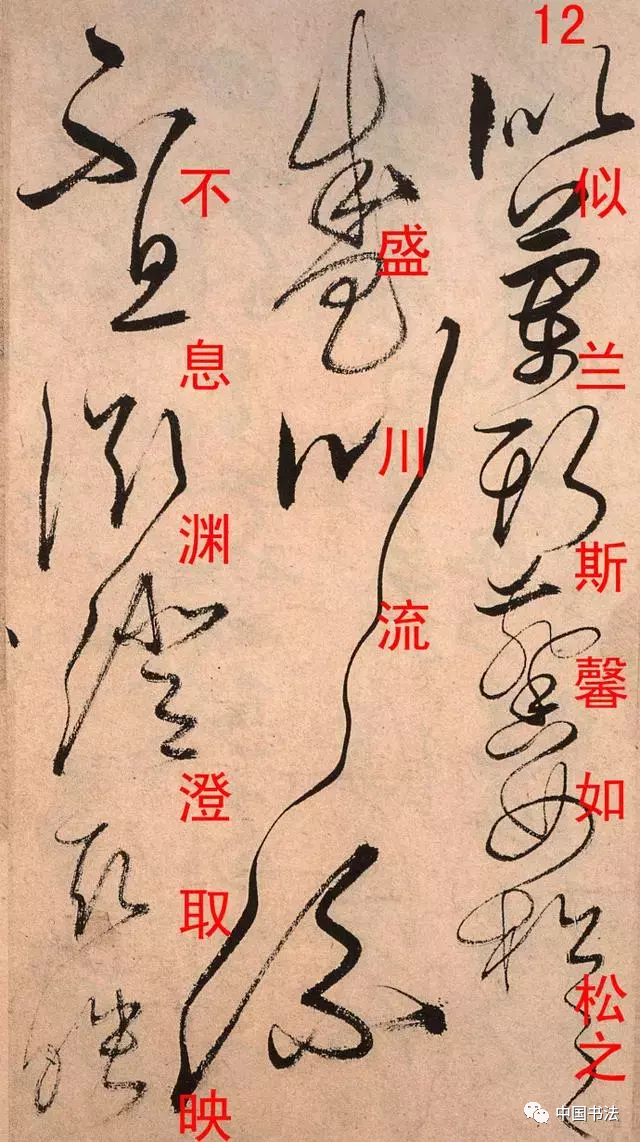 12
似兰斯馨如松之
盛川流
不息渊澄取映
中国书法